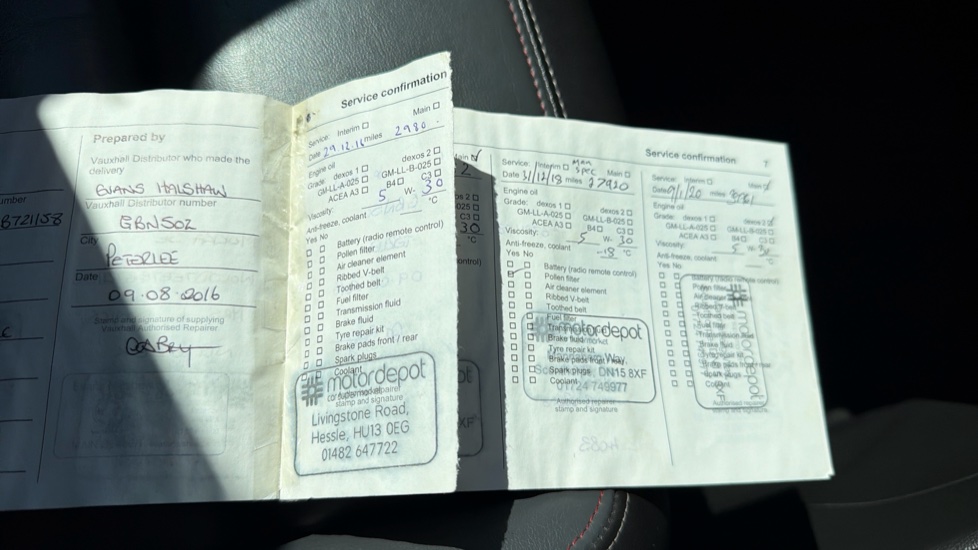 Prepared by
Vauxhall Distributor who made the
delivery
EVANS HALSHAW
Vauxhall Distributor number
GBN502
City
PETERLEE
Date
09.08.2016
Stamp and signature of supplying
Vauxhall Authorised Repairer
umber
B721158
Service confirmation
Service: Interim Main
Date 29.12.16 miles 2980
Engine oil
Grade: dexos 1 dexos 2
GM-LL-A-025 GM-LL-B-025
ACEA A3 B4 C3
Viscosity: 5 W- 30
Anti-freeze, coolant °C
Yes No
Battery (radio remote control)
Pollen filter
Air cleaner element
Ribbed V-belt
Toothed belt
Fuel filter
Transmission fluid
Brake fluid
Tyre repair kit
Brake pads front / rear
Spark plugs
Coolant
motordepot
car supermarket
stamp and signature
Livingstone Road,
Hessle, HU13 0EG
01482 647722
Service confirmation
Service: Interim Man Spec Main
Date 31/12/18 miles
Engine oil
Grade: dexos 1 dexos 2
GM-LL-A-025 GM-LL-B-025
ACEA A3 B4 C3
Viscosity: 5 W- 30
Anti-freeze, coolant -18 °C
Yes No
Battery (radio remote control)
Pollen filter
Air cleaner element
Ribbed V-belt
Toothed belt
Fuel filter
Brake fluid
Tyre repair kit
Brake pads front / rear
Spark plugs
Coolant
motordepot
Way,
DN15 8XF
01724 749977
Authorised repairer
stamp and signature
Service: Interim Main
Date 9/1/20 miles
Engine oil
Grade: dexos 1 dexos 2
GM-LL-A-025 GM-LL-B-025
ACEA A3 B4 C3
Viscosity: 5 W- 30
Anti-freeze, coolant °C
Yes No
Battery (radio remote control)
Pollen filter
Air cleaner
Ribbed V-belt
Toothed belt
Fuel filter
Transmission fluid
Brake fluid
Tyre repair kit
Brake pads front / rear
Spark plugs
Coolant
motordepot
Authorised repairer
stamp and signature